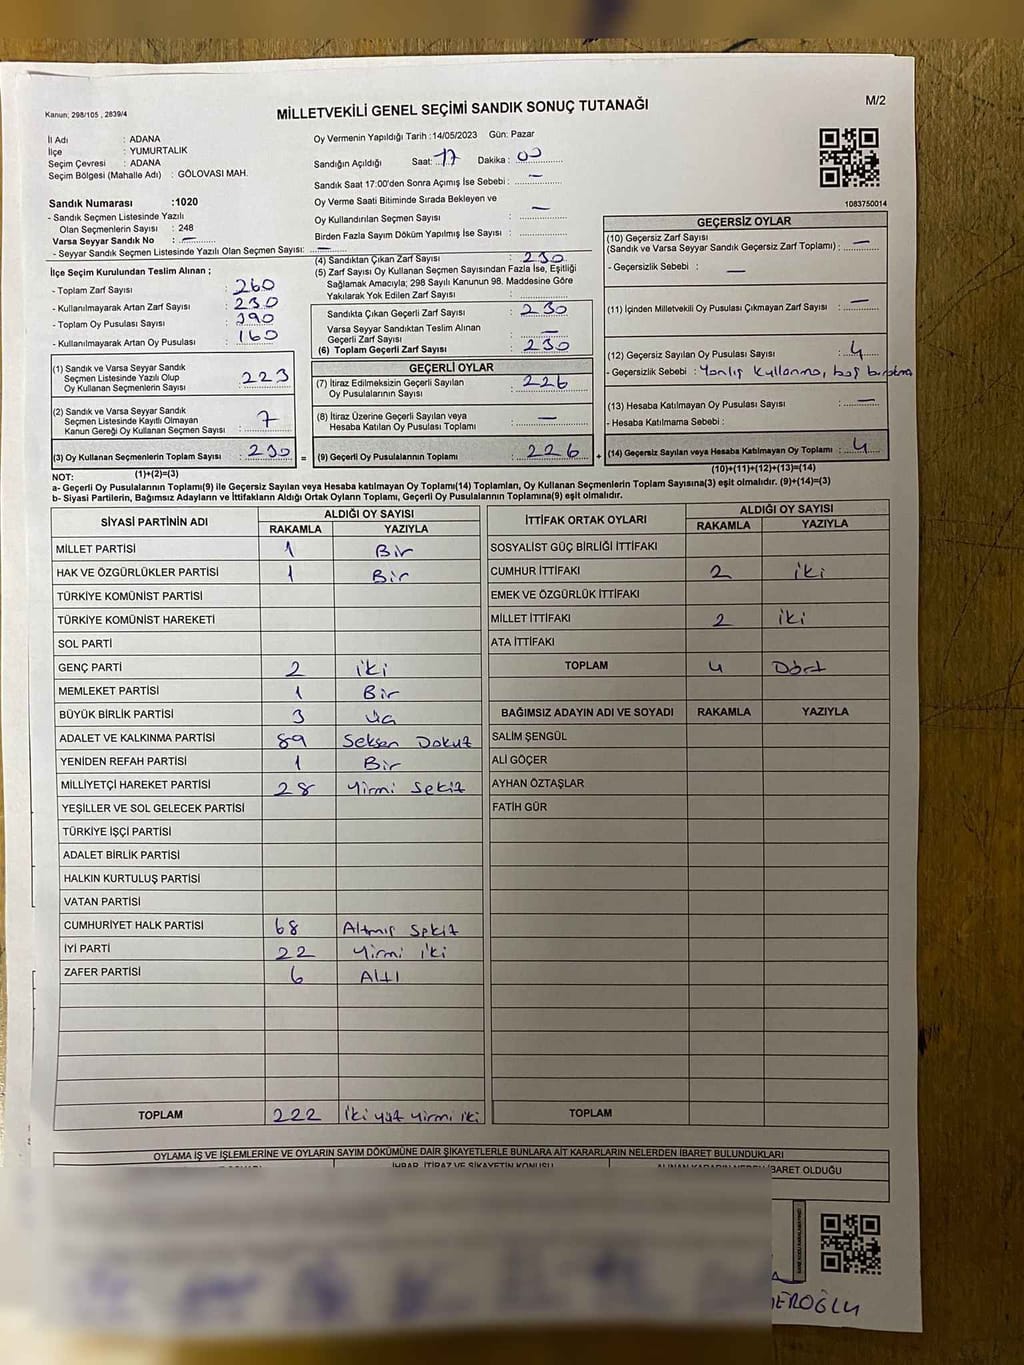 Kanun; 298/105 , 2839/4
MİLLETVEKİLİ GENEL SEÇİMİ SANDIK SONUÇ TUTANAĞI
M/2
İl Adı : ADANA
İlçe : YUMURTALIK
Seçim Çevresi : ADANA
Seçim Bölgesi (Mahalle Adı) : GÖLOVASI MAH.
Oy Vermenin Yapıldığı Tarih :14/05/2023 Gün: Pazar
Sandığın Açıldığı Saat: 17 Dakika : 00
Sandık Saat 17:00'den Sonra Açımış İse Sebebi : —
Oy Verme Saati Bitiminde Sırada Bekleyen ve
Oy Kullandırılan Seçmen Sayısı : —
Birden Fazla Sayım Döküm Yapılmış İse Sayısı :
1083750014
Sandık Numarası :1020
- Sandık Seçmen Listesinde Yazılı
Olan Seçmenlerin Sayısı : 248
Varsa Seyyar Sandık No : —
- Seyyar Sandık Seçmen Listesinde Yazılı Olan Seçmen Sayısı: —
İlçe Seçim Kurulundan Teslim Alınan ;
- Toplam Zarf Sayısı : 260
- Kullanılmayarak Artan Zarf Sayısı : 230
- Toplam Oy Pusulası Sayısı : 390
- Kullanılmayarak Artan Oy Pusulası : 160
(1) Sandık ve Varsa Seyyar Sandık
Seçmen Listesinde Yazılı Olup
Oy Kullanan Seçmenlerin Sayısı : 223
(2) Sandık ve Varsa Seyyar Sandık
Seçmen Listesinde Kayıtlı Olmayan
Kanun Gereği Oy Kullanan Seçmen Sayısı : 7
(3) Oy Kullanan Seçmenlerin Toplam Sayısı : 230 =
(1)+(2)=(3)
(4) Sandıktan Çıkan Zarf Sayısı : 230
(5) Zarf Sayısı Oy Kullanan Seçmen Sayısından Fazla İse, Eşitliği
Sağlamak Amacıyla; 298 Sayılı Kanunun 98. Maddesine Göre
Yakılarak Yok Edilen Zarf Sayısı :
Sandıkta Çıkan Geçerli Zarf Sayısı : 230
Varsa Seyyar Sandıktan Teslim Alınan
Geçerli Zarf Sayısı : —
(6) Toplam Geçerli Zarf Sayısı : 230
GEÇERLİ OYLAR
(7) İtiraz Edilmeksizin Geçerli Sayılan
Oy Pusulasının Sayısı : 226
(8) İtiraz Üzerine Geçerli Sayılan veya
Hesaba Katılan Oy Pusulası Toplamı : —
(9) Geçerli Oy Pusulalarının Toplamı : 226 +
GEÇERSİZ OYLAR
(10) Geçersiz Zarf Sayısı
(Sandık ve Varsa Seyyar Sandık Geçersiz Zarf Toplamı) : —
- Geçersizlik Sebebi : —
(11) İçinden Milletvekili Oy Pusulası Çıkmayan Zarf Sayısı : —
(12) Geçersiz Sayılan Oy Pusulası Sayısı : 4
- Geçersizlik Sebebi : Yanlış kullanma, boş bırakma
(13) Hesaba Katılmayan Oy Pusulası Sayısı : —
- Hesaba Katılmama Sebebi :
(14) Geçersiz Sayılan veya Hesaba Katılmayan Oy Toplamı : 4
(10)+(11)+(12)+(13)=(14)
NOT:
a- Geçerli Oy Pusulalarının Toplamı(9) ile Geçersiz Sayılan veya Hesaba katılmayan Oy Toplamı(14) Toplamları, Oy Kullanan Seçmenlerin Toplam Sayısına(3) eşit olmalıdır. (9)+(14)=(3)
b- Siyasi Partilerin, Bağımsız Adayların ve İttifakların Aldığı Ortak Oyların Toplamı, Geçerli Oy Pusulalarının Toplamına(9) eşit olmalıdır.
SİYASİ PARTİNİN ADI
ALDIĞI OY SAYISI
RAKAMLA YAZIYLA
MİLLET PARTİSİ 1 Bir
HAK VE ÖZGÜRLÜKLER PARTİSİ 1 Bir
TÜRKİYE KOMÜNİST PARTİSİ
TÜRKİYE KOMÜNİST HAREKETİ
SOL PARTİ
GENÇ PARTİ 2 iki
MEMLEKET PARTİSİ 1 Bir
BÜYÜK BİRLİK PARTİSİ 3 üç
ADALET VE KALKINMA PARTİSİ 89 Seksen Dokuz
YENİDEN REFAH PARTİSİ 1 Bir
MİLLİYETÇİ HAREKET PARTİSİ 28 Yirmi Sekiz
YEŞİLLER VE SOL GELECEK PARTİSİ
TÜRKİYE İŞÇİ PARTİSİ
ADALET BİRLİK PARTİSİ
HALKIN KURTULUŞ PARTİSİ
VATAN PARTİSİ
CUMHURİYET HALK PARTİSİ 68 Altmış Sekiz
İYİ PARTİ 22 Yirmi iki
ZAFER PARTİSİ 6 Altı
TOPLAM 222 iki yüz yirmi iki
İTTİFAK ORTAK OYLARI
ALDIĞI OY SAYISI
RAKAMLA YAZIYLA
SOSYALİST GÜÇ BİRLİĞİ İTTİFAKI
CUMHUR İTTİFAKI 2 iki
EMEK VE ÖZGÜRLÜK İTTİFAKI
MİLLET İTTİFAKI 2 iki
ATA İTTİFAKI
TOPLAM 4 Dört
BAĞIMSIZ ADAYIN ADI VE SOYADI RAKAMLA YAZIYLA
SALİM ŞENGÜL
ALİ GÖÇER
AYHAN ÖZTAŞLAR
FATİH GÜR
TOPLAM
OYLAMA İŞ VE İŞLEMLERİNE VE OYLARIN SAYIM DÖKÜMÜNE DAİR ŞİKAYETLERLE BUNLARA AİT KARARLARIN NELERDEN İBARET BULUNDUKLARI
İHBAR, İTİRAZ VE ŞİKAYETİN KONUSU
İBARET OLDUĞU
EROĞLU